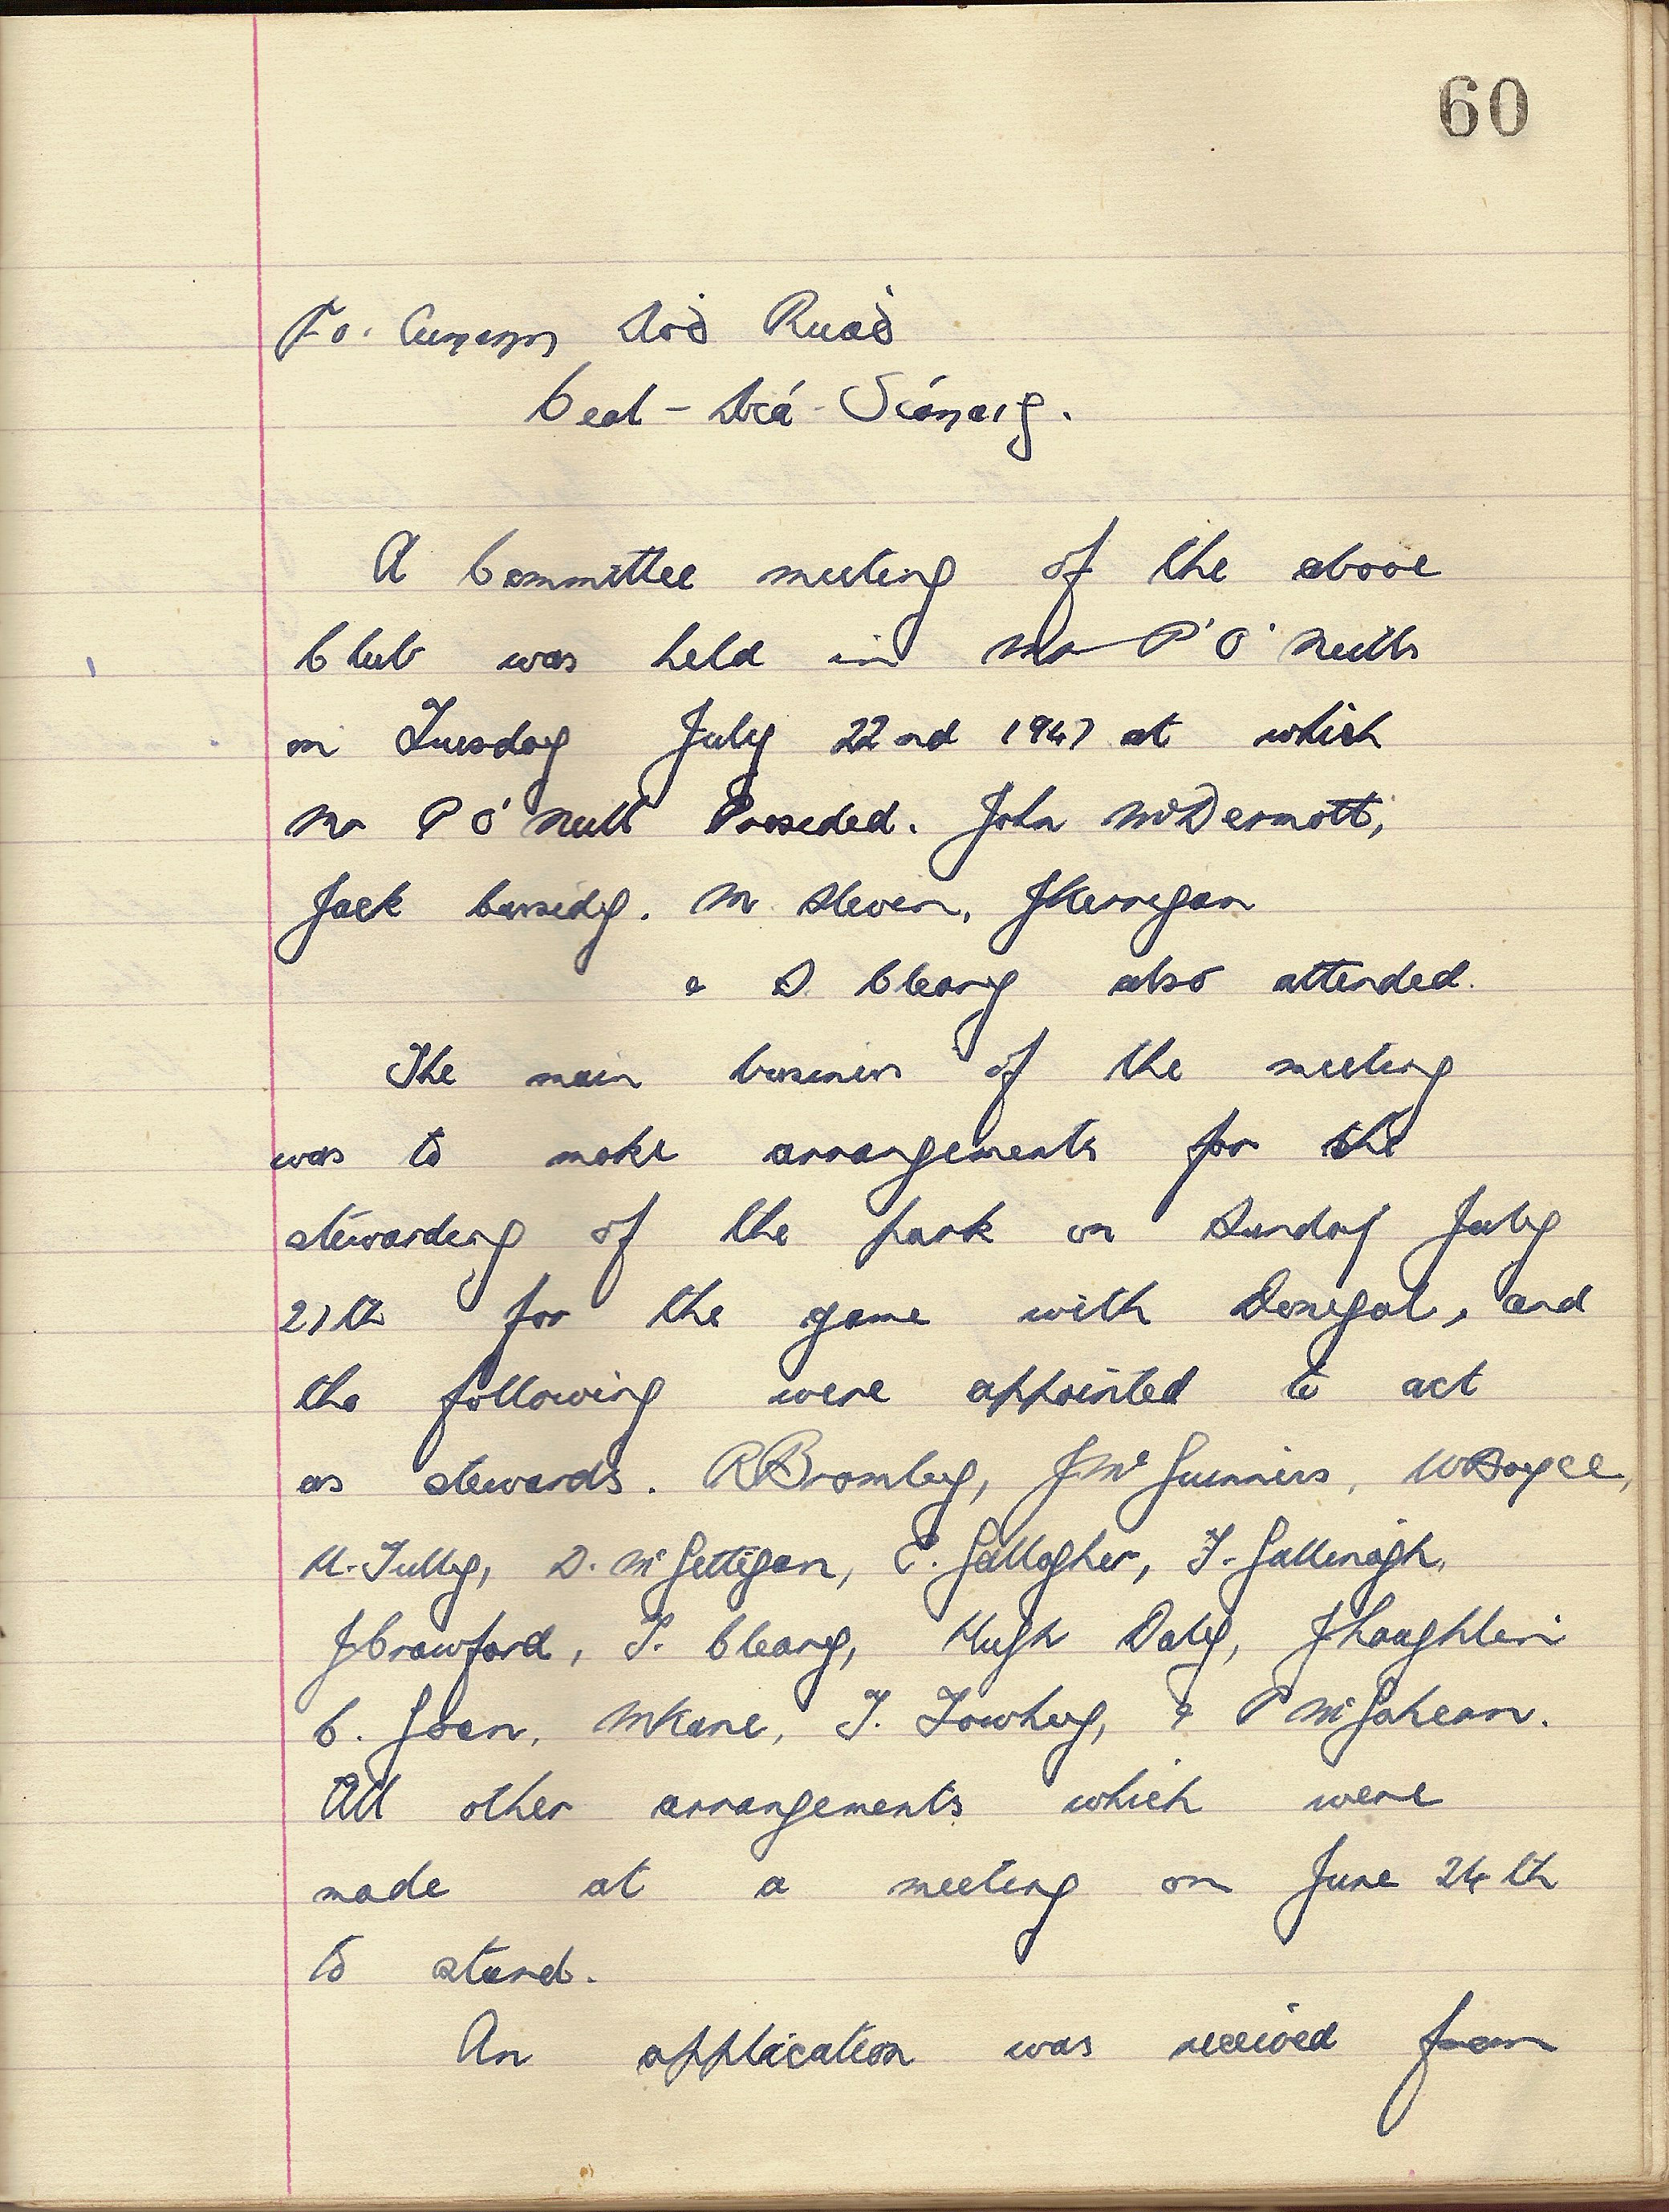 60
Fo. Cumann Aoḋ Ruaḋ
Beal-Áṫa-Seanaig.
A Committee meeting of the above
Club was held in Mr P O' Neills
on Tuesday July 22nd 1947 at which
Mr P O' Neill Preseded. John McDermott,
Jack Cassidy. M Sleven, J Kerrigan
& S. Cleary also attended.
The main business of the meeting
was to make arrangements for the
stewarding of the park on Sunday July
27th for the game with Donegal, and
the following were appointed to act
as stewards. R Bromley, J Mc Guinniss, W Boyce,
M. Tully, D. Mc Gettigan, E. Gallagher, T. Gallinagh,
J Crawford, T. Cleary, Hugh Daly, J Loughlin
C. Goan, M Kane, T. Towhey, & P Mc Gahearn.
All other arrangements which were
made at a meeting on June 24th
to stand.
An application was received from